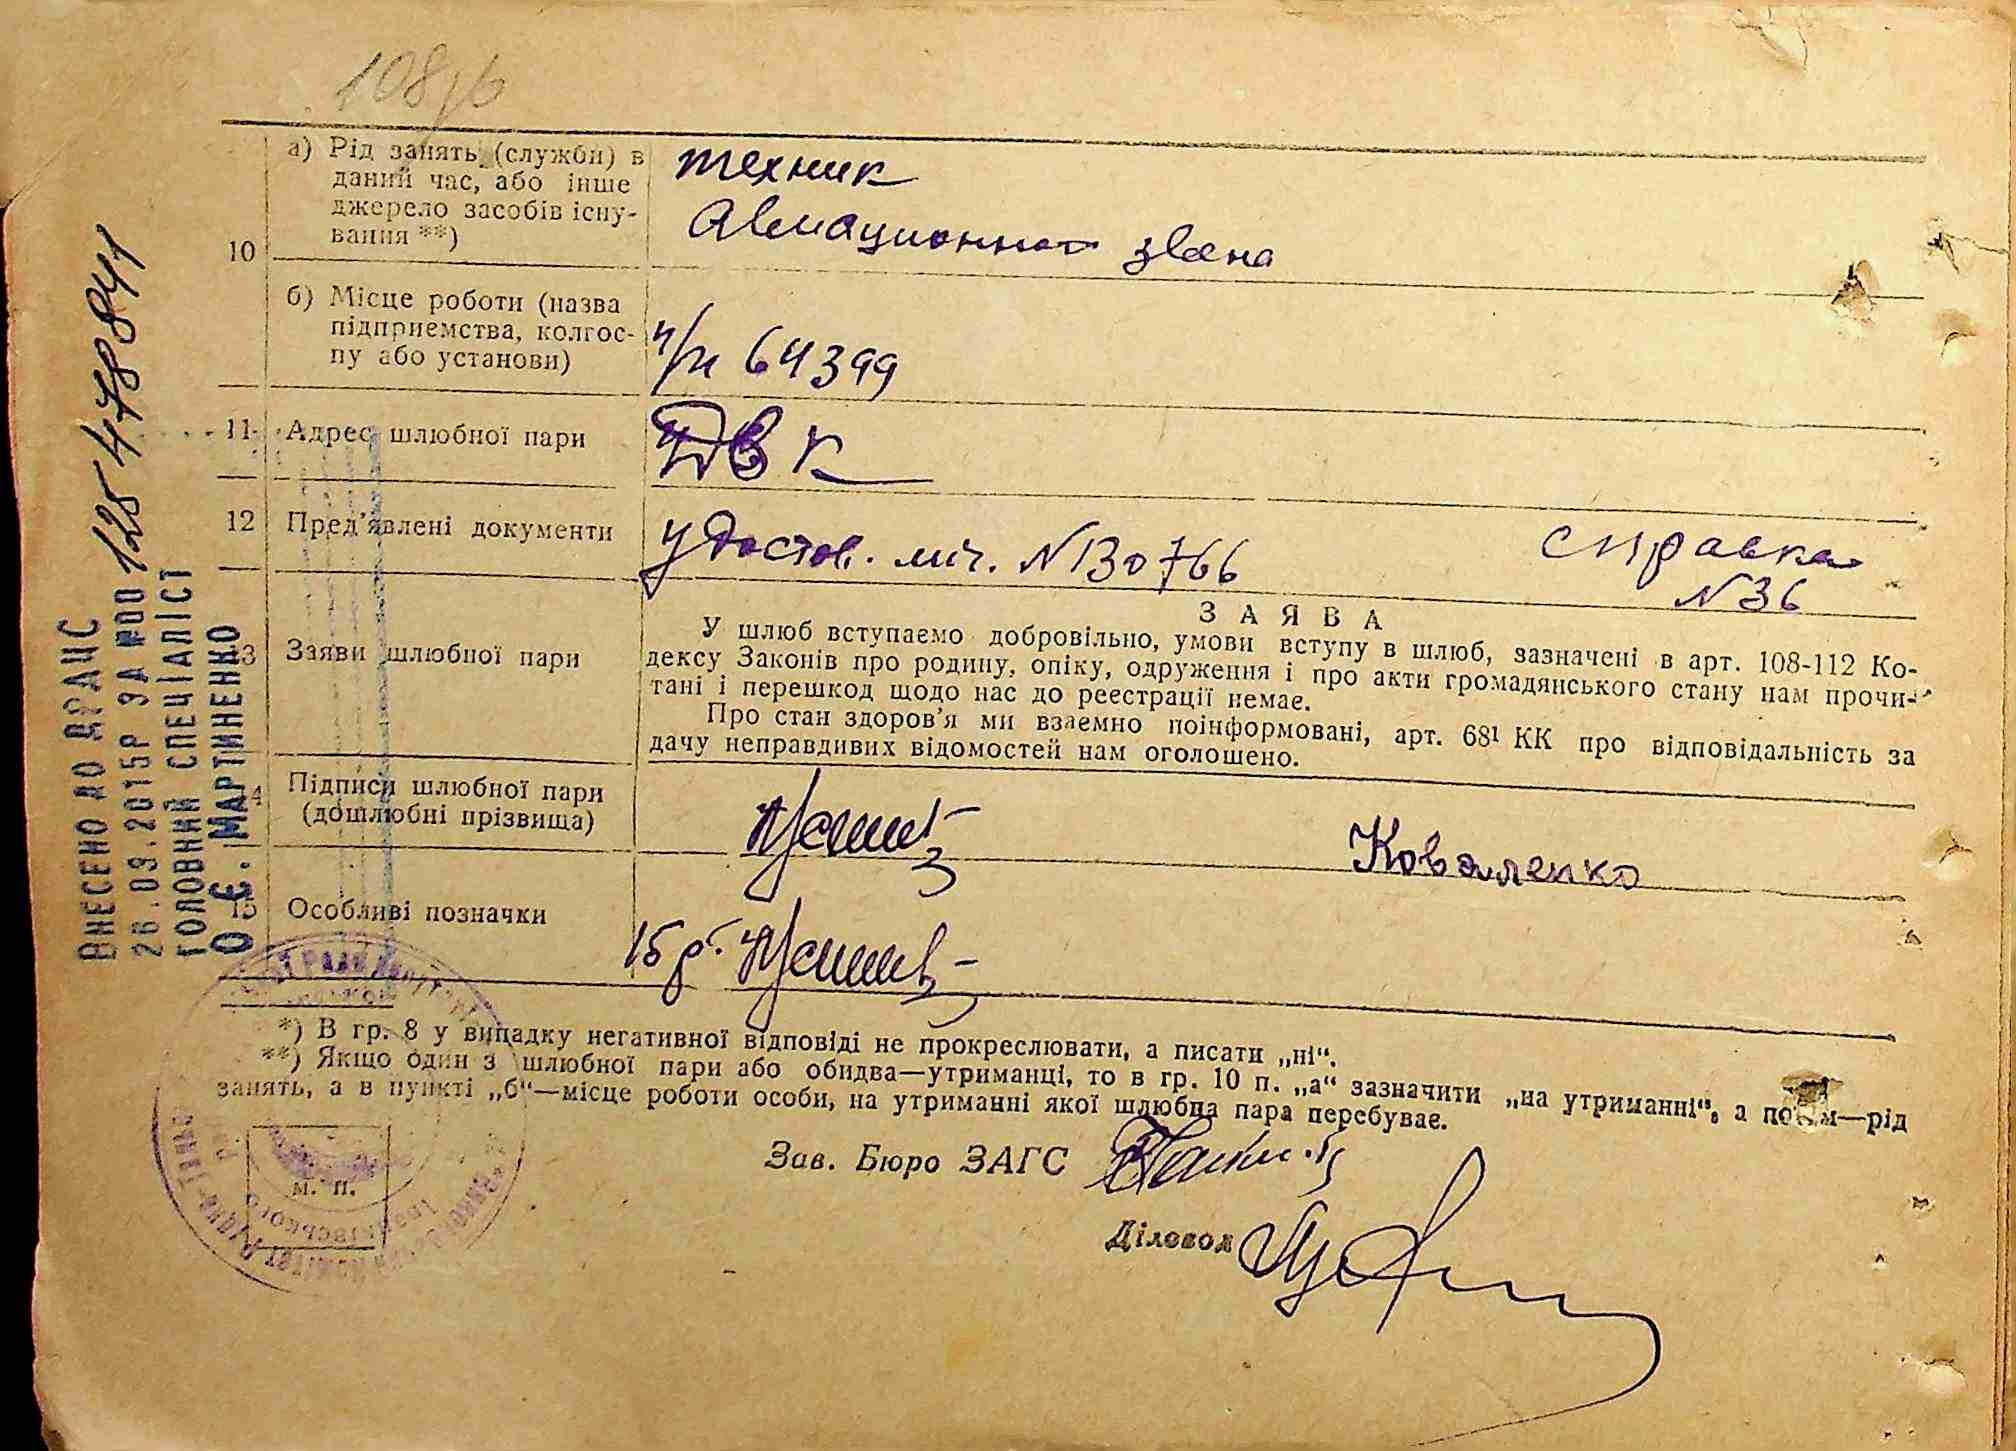 а) Рід занять (служби) в
даний час, або інше
джерело засобів існу-
вання **)
техник
Авиационного звена
10
б) Місце роботи (назва
підприемства, колгос-
пу або установи)
п/п 64399
11 Адрес шлюбної пари
ДВК
12 Пред'явлені документи
удостов. лич. №130766
справка
№36
13 Заяви шлюбної пари
ЗАЯВА
У шлюб вступаємо добровільно, умови вступу в шлюб, зазначені в арт. 108-112 Ко-
дексу Законів про родину, опіку, одруження і про акти громадянського стану нам прочи-
тані і перешкод щодо нас до реестрації немає.
Про стан здоров'я ми взаемно поінформовані, арт. 68¹ КК про відповідальність за
дачу неправдивих відомостей нам оголошено.
14 Підписи шлюбної пари
(дошлюбні прізвища)
Коваленко
15 Особливі позначки
15 р.
*) В гр. 8 у випадку негативної відповіді не прокреслювати, а писати „ні“.
**) Якщо один з шлюбної пари або обидва—утриманці, то в гр. 10 п. „а“ зазначити „на утриманні“, а потім—рід
занять, а в пункті „б“—місце роботи особи, на утриманні якої шлюбна пара перебуває.
Зав. Бюро ЗАГС
Діловод
м. п.
ВНЕСЕНО ДО ДРАЦС
26.09.2015Р ЗА №00125478841
ГОЛОВНИЙ СПЕЦІАЛІСТ
О.Є. МАРТИНЕНКО